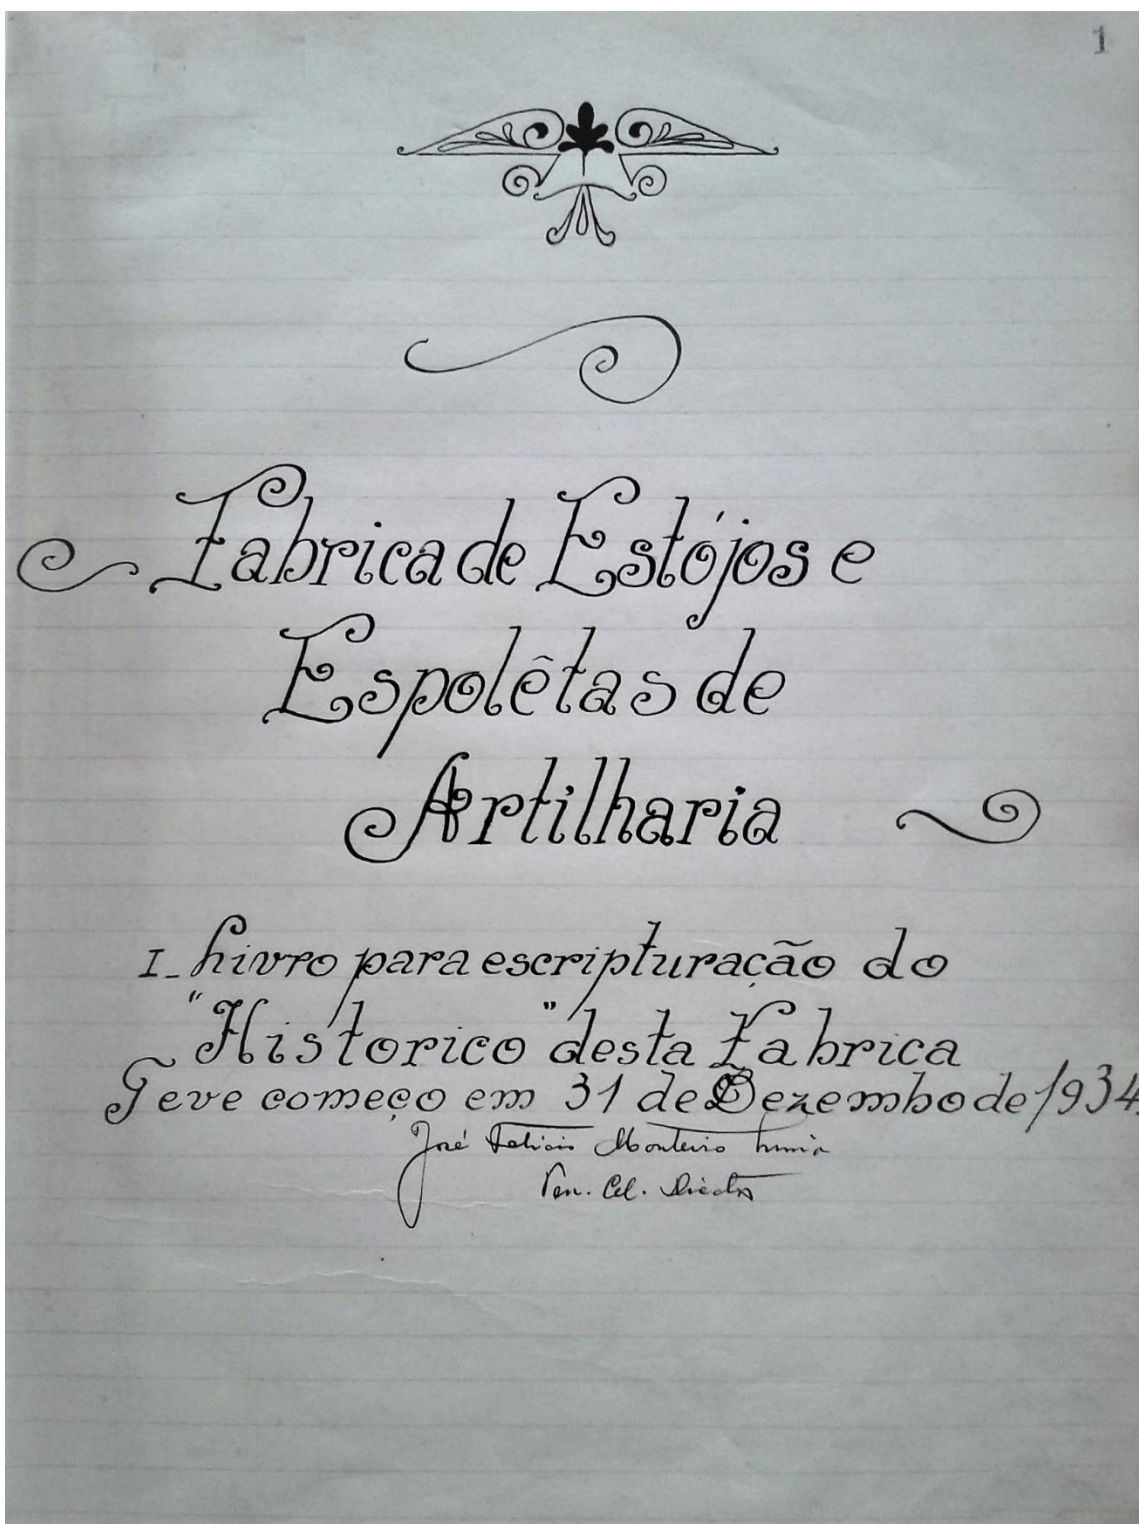 1
Fabrica de Estójos e
Espolêtas de
Artilharia
I_ Livro para escripturação do
"Historico" desta Fabrica
Teve começo em 31 de Dezembo de 1934
José Felicio Monteiro Lima
Ten. Cel. Director